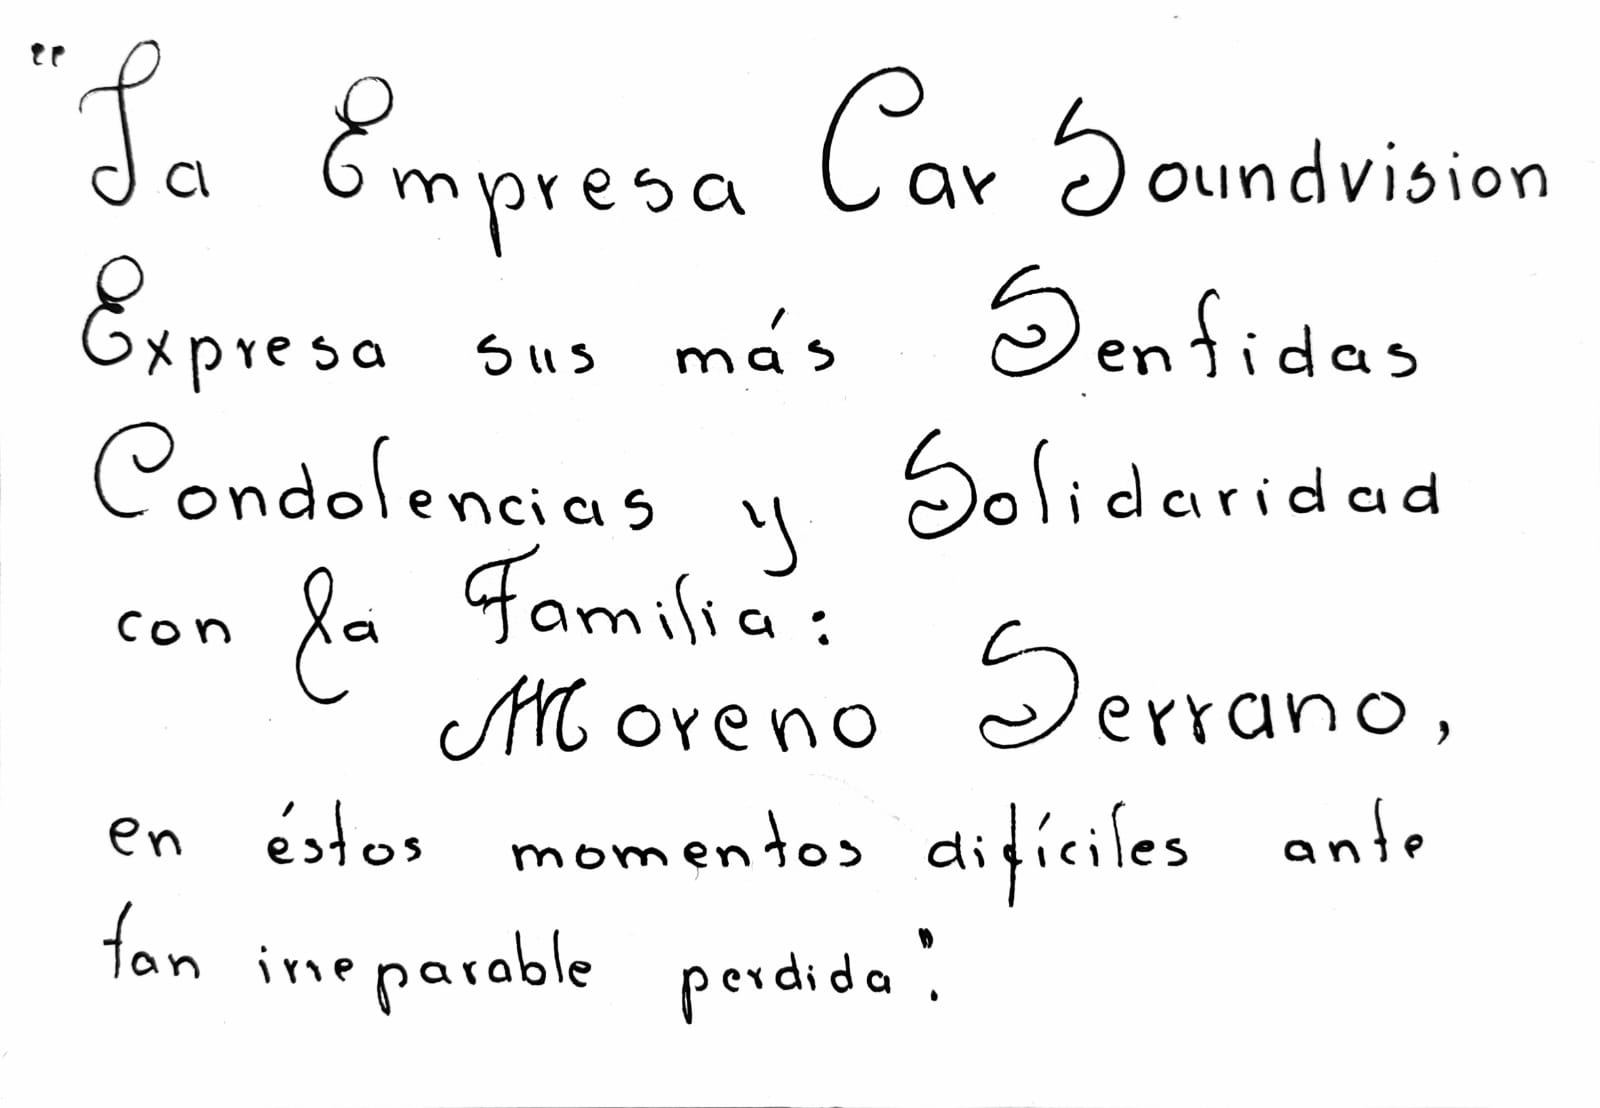 "La Empresa Car Soundvision
Expresa sus más Sentidas
Condolencias y Solidaridad
con la Familia:
Moreno Serrano,
en éstos momentos difíciles ante
tan irreparable perdida".